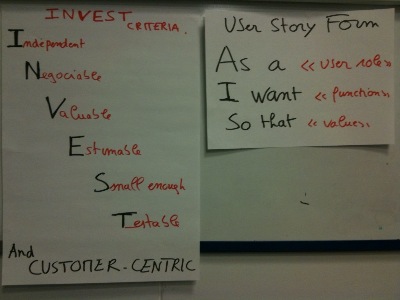 INVEST
CRITERIA.
Independent
Negociable
Valuable
Estimable
Small enough
Testable
And
CUSTOMER-CENTRIC
User Story Form
As a « user role »
I want « function »
So that « value »